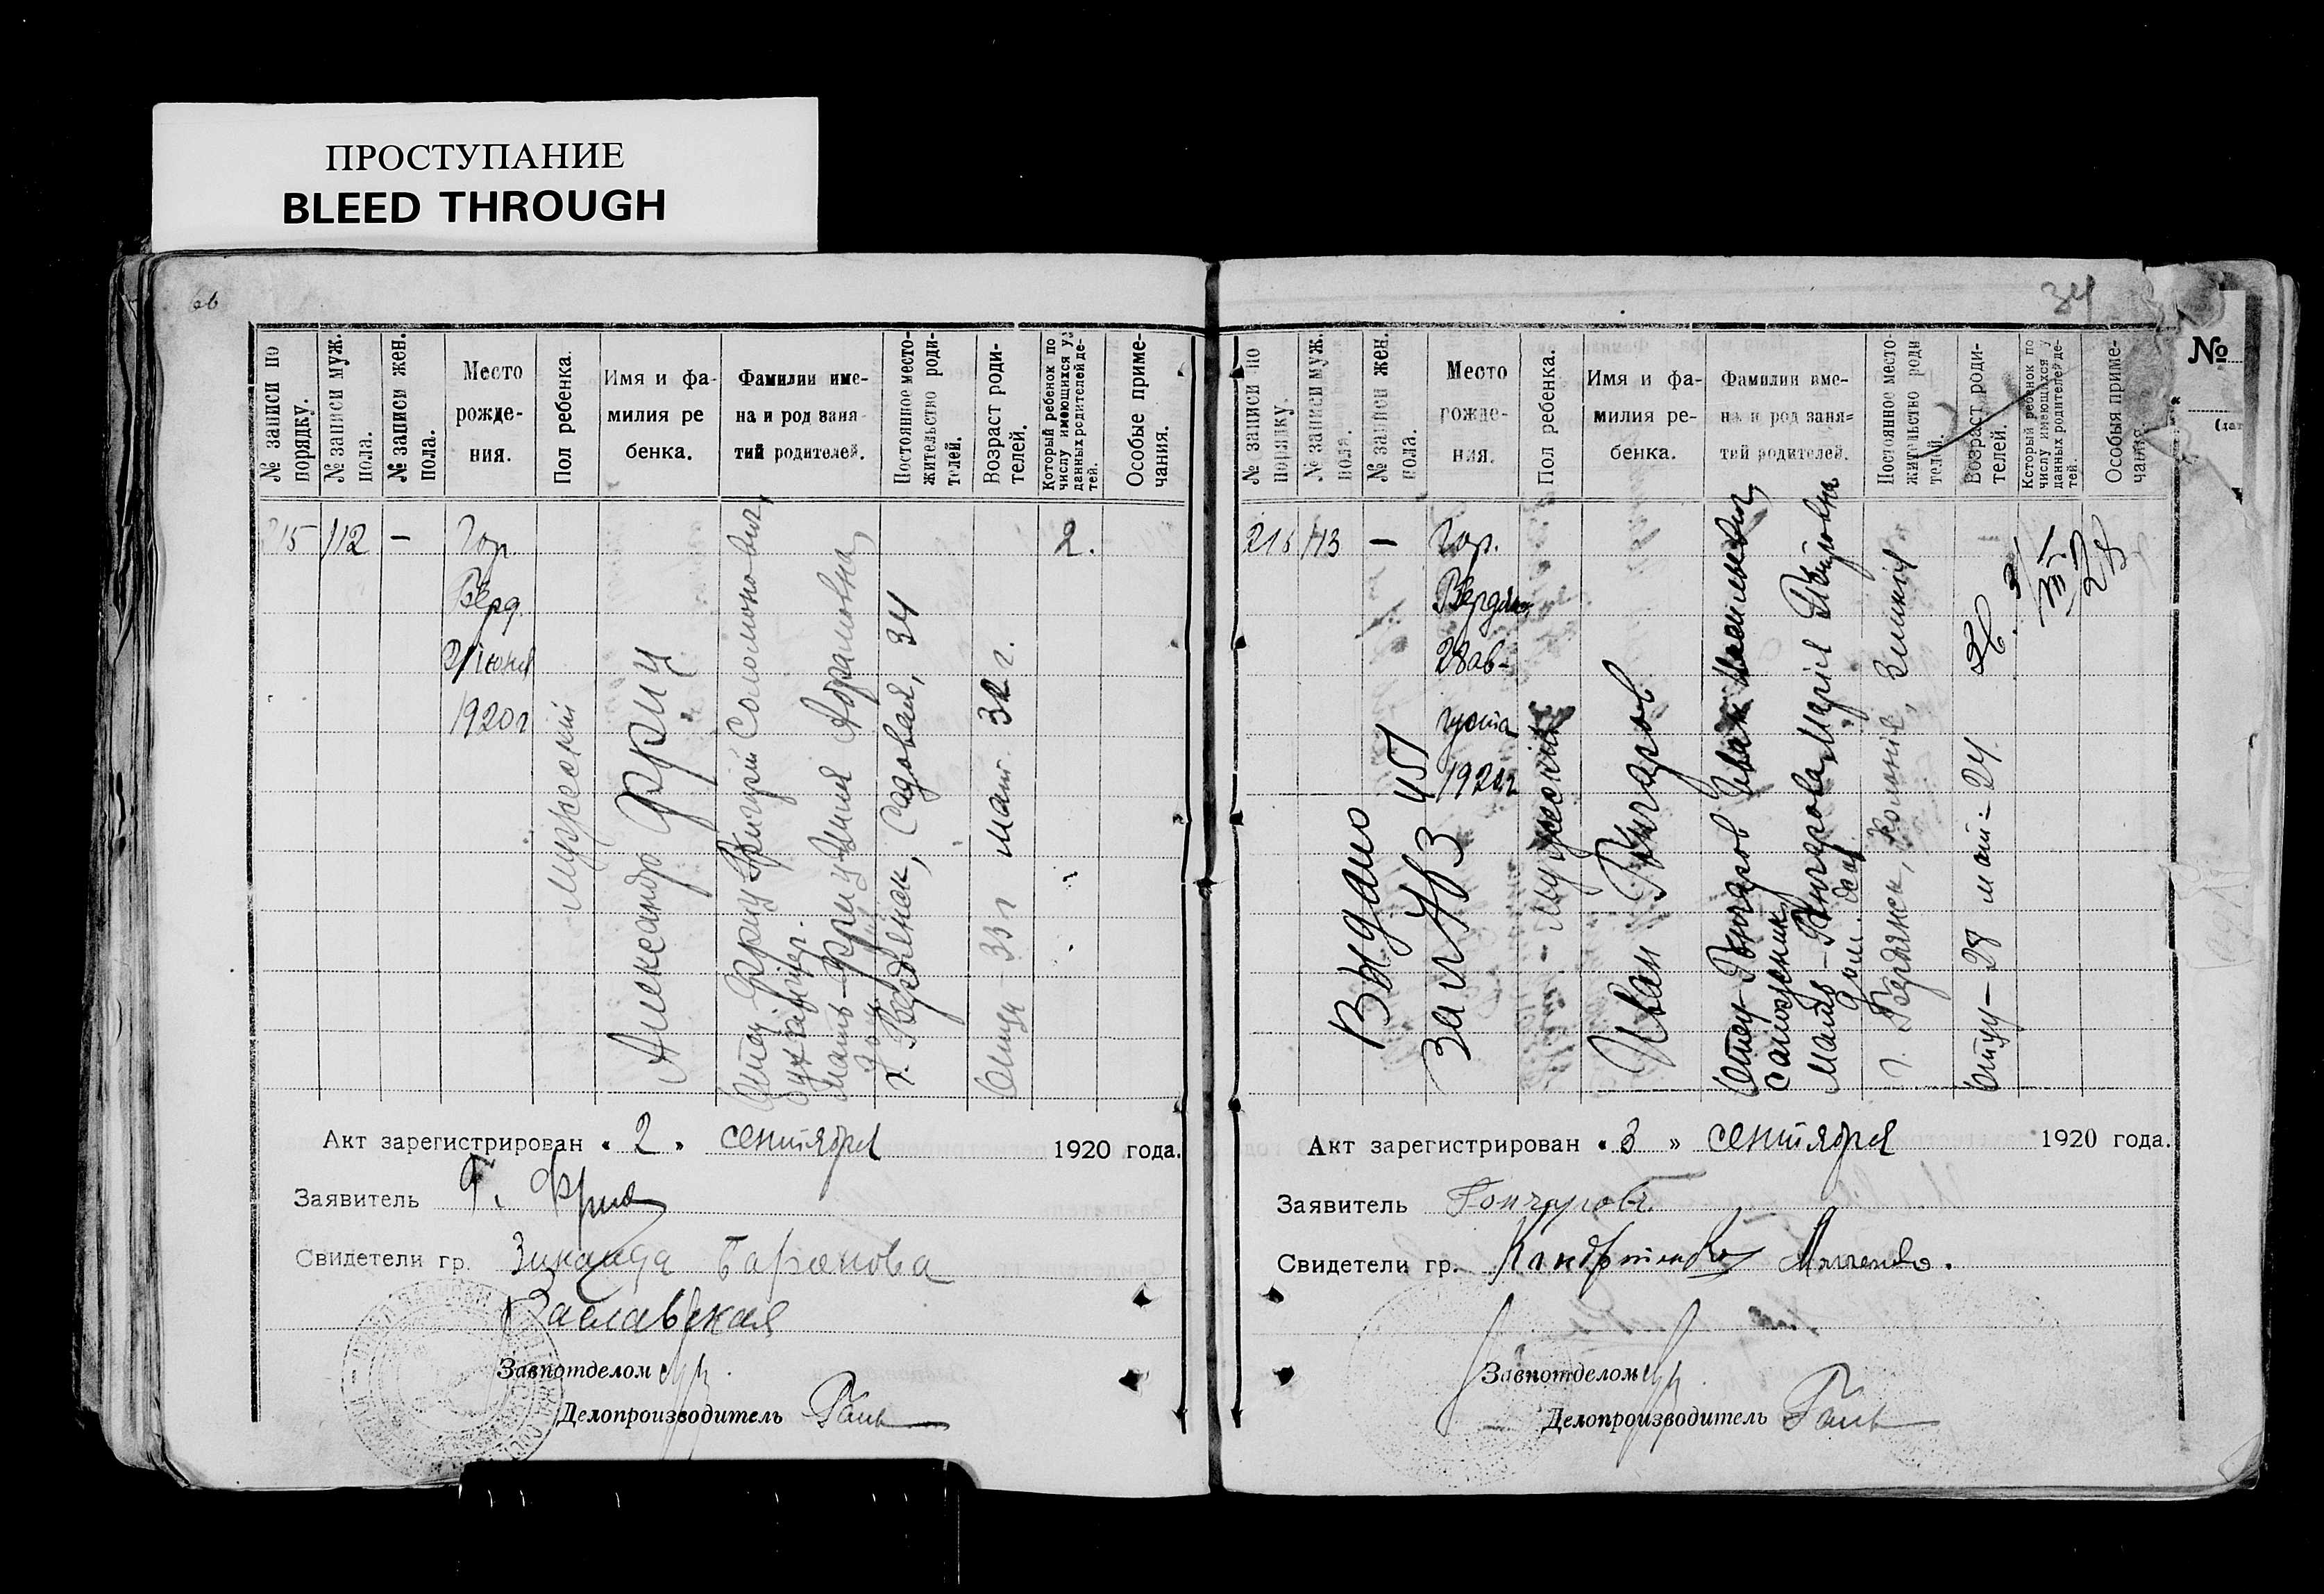 ПРОСТУПАНИЕ
BLEED THROUGH
№ записи по порядку.
№ записи муж. пола.
№ записи жен. пола.
Место рожде-ния.
Пол ребенка.
Имя и фа-милия ре бенка.
Фамилии име-на и род заня-тий родителей.
Постоянное место-жительство роди-телей.
Возраст роди-телей.
Который ребенок по числу имеющихся у данных родителей де-тей.
Особые приме-чания.
15
112
—
Гор
Берд.
1920 г
мужеский
Александр Фриц
Отец Фриц Григорий Соломонович,
бухгалтер.
Мать Фриц Авраамовна,
г. Бердянск, Садовая, 34
Отцу 33 г мат. 32 г.
2.
Акт зарегистрирован « 2 » сентября 1920 года.
Заявитель Г. Фриц
Свидетели гр. Зинаида Баранова
Заславская
Завпотделом
Делопроизводитель
34
№
№ записи по порядку.
№ записи муж. пола.
№ записи жен. пола.
Место рожде-ния.
Пол ребенка.
Имя и фа-милия ре-бенка.
Фамилии име-на и род заня-тий родителей.
Постоянное место-жительство роди телей.
Возраст роди-телей.
Который ребенок по числу имеющихся у данных родителей де-тей.
Особыя приме-чания.
216
113
—
Гор.
Бердян
28 ав-
густа
1920 г
Выдано
за № 483
мужеский
Иван Гончаров
Отец Гончаров Иван
сапожник
Мать Гончарова Мария Петровна
дом. хоз.
г. Бердянск, Колония,
Отцу — 28 мат — 24
Акт зарегистрирован « 3 » сентября 1920 года.
Заявитель Гончаровъ.
Свидетели гр.
Завпотделом
Делопроизводитель